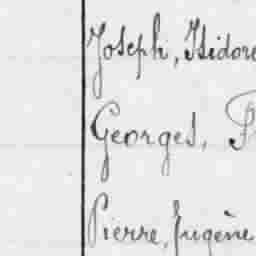 Joseph, Isidore
Georges, P
Pierre, Eugène